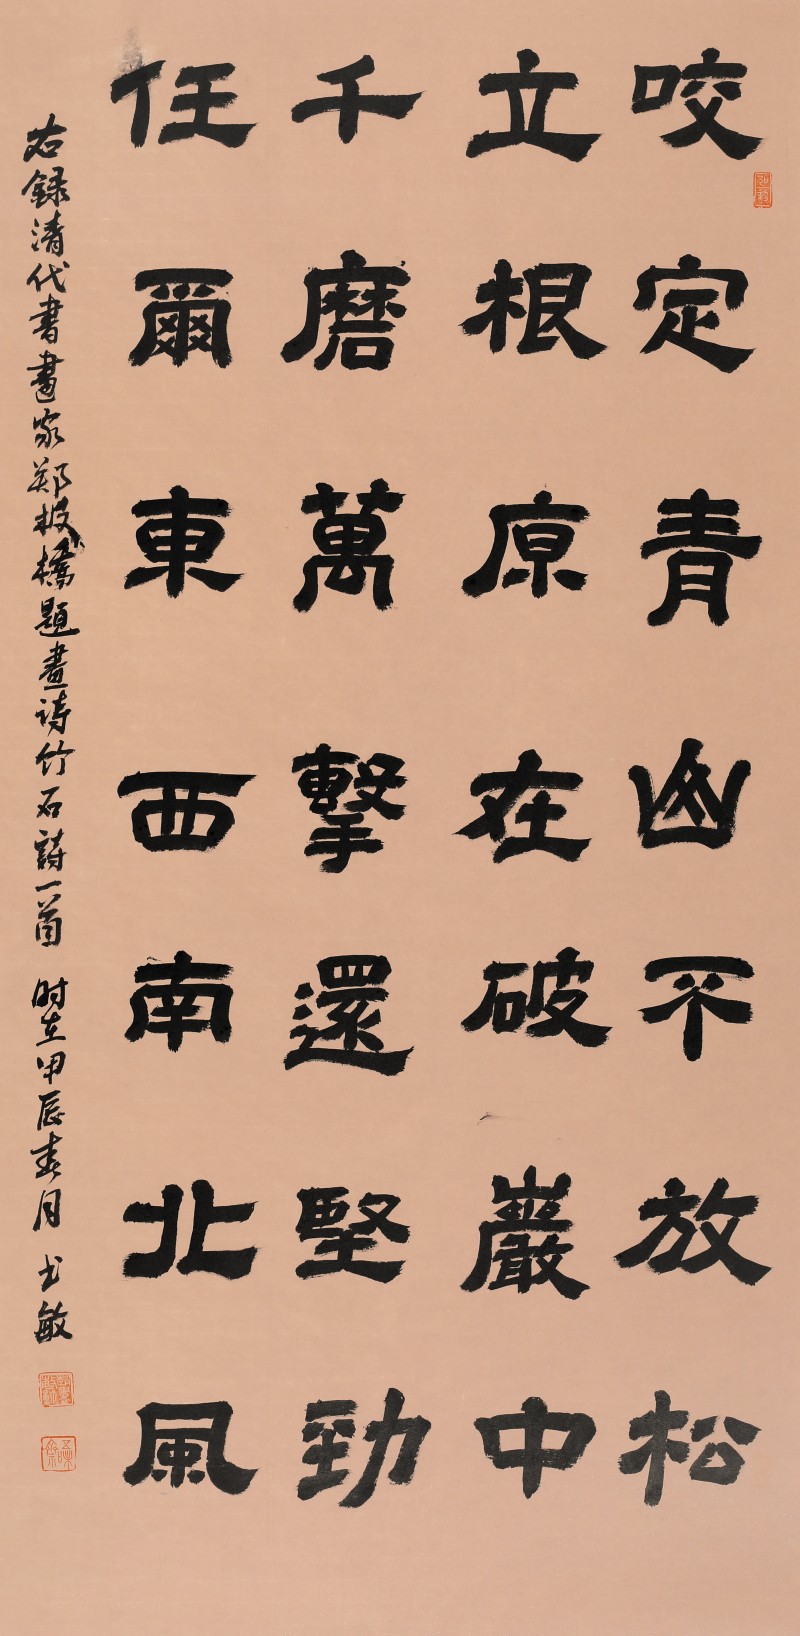 咬定青山不放松
立根原在破巖中
千磨萬擊還堅勁
任爾東西南北風
右録清代書畫家郑板橋題畫詩竹石詩一首 时在甲辰春月 书敏